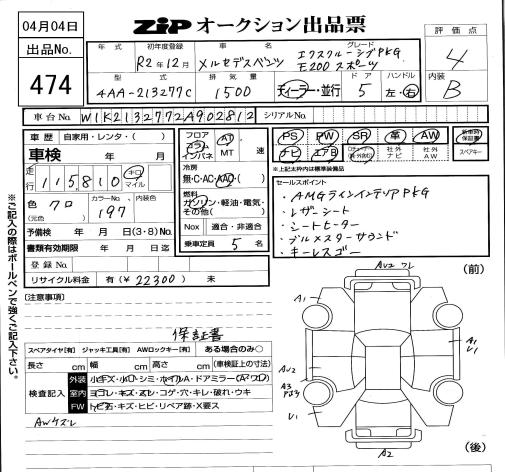 04月04日
ZIP オークション出品票
出品No.
474
評価点
4
内装
B
年式 初年度登録 車名
R2年12月 メルセデスベンツ エクスクルーシブPKG
E200スポーツ
型式 排気量 ドア ハンドル
4AA-213277C 1500 ディーラー・並行 5 左・右
車台No. W1K2132772A902812 シリアルNo.
車歴 自家用・レンタ・( )
車検 年 月
走行 115,810 キロ マイル
色 クロ (元色) カラーNo. 197 内装色
予備検 年 月 日(3・8)No.
書類有効期限 年 月 日迄
登録No.
リサイクル料金 有(¥22300) 未
フロア コラム インパネ AT MT 速
冷房 無・C・AC・AAC・( )
燃料 ガソリン・軽油・電気・その他( )
Nox 適合・非適合
乗車定員 5 名
PS PW SR 革 AW
ナビ エアB 社外ナビ 社外AW
新車時保証書
スペアキー
※上記太枠内は標準装備品
セールスポイント
・AMGラインインテリアPKG
・レザーシート
・シートヒーター
・ブルメスターサウンド
・キーレスゴー
※ご記入の際はボールペンで強くご記入下さい。
(注意事項)
保証書
スペアタイヤ[有] ジャッキ工具[有] AWロックキー[有] ある場合のみ○
長さ cm 幅 cm 高さ cm (車検証上の寸法)
検査記入
外装 小キズ・小凹・シミ・ホイルA・ドアミラー(A・ワレ)
室内 ヨゴレ・キズ・スレ・コゲ・穴・キレ・破れ・ウキ
FW トビ石・キズ・ヒビ・リペア跡・X要ス
AWスレ
(前)
AU2 ワレ
A1
A1
U1
AU2
A3
U1
A2
(後)